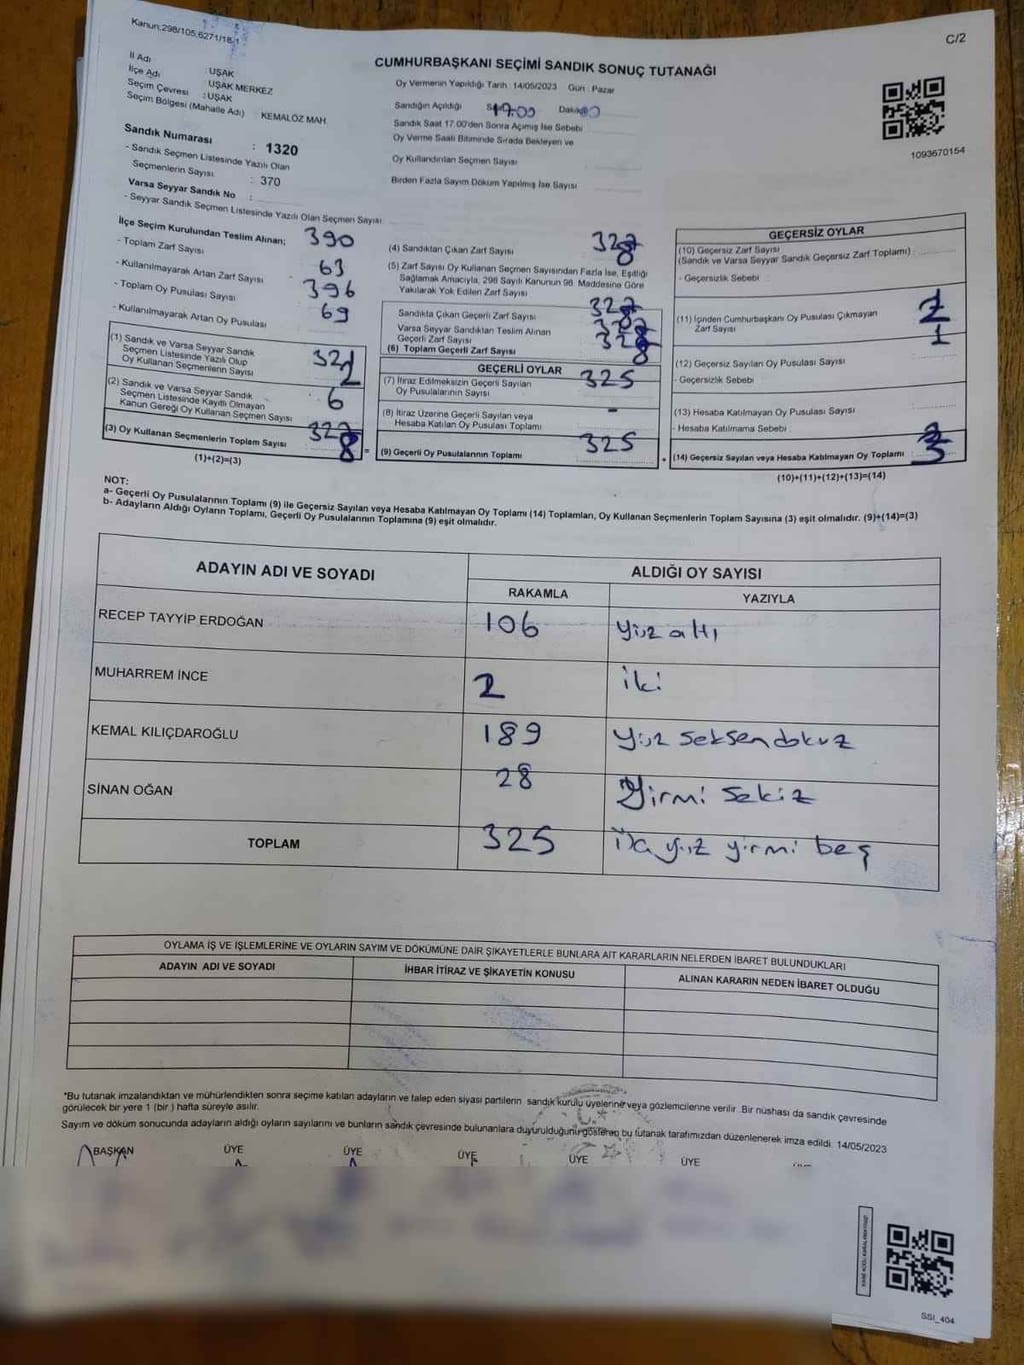 Kanun;298/105,6271/18-1
C/2
CUMHURBAŞKANI SEÇİMİ SANDIK SONUÇ TUTANAĞI
İl Adı : UŞAK
İlçe Adı : UŞAK MERKEZ
Seçim Çevresi : UŞAK
Seçim Bölgesi (Mahalle Adı) KEMALÖZ MAH.
Oy Vermenin Yapıldığı Tarih 14/05/2023 Gün : Pazar
Sandığın Açıldığı 17.00
Sandık Saat 17.00'den Sonra Açımış İse Sebebi
Oy Verme Saati Bitiminde Sırada Bekleyen ve
Oy Kullandırılan Seçmen Sayısı
Birden Fazla Sayım Döküm Yapılmış İse Sayısı
1093670154
Sandık Numarası : 1320
- Sandık Seçmen Listesinde Yazılı Olan
Seçmenlerin Sayısı : 370
Varsa Seyyar Sandık No :
- Seyyar Sandık Seçmen Listesinde Yazılı Olan Seçmen Sayısı
İlçe Seçim Kurulundan Teslim Alınan;
- Toplam Zarf Sayısı 390
- Kullanılmayarak Artan Zarf Sayısı 63
- Toplam Oy Pusulası Sayısı 396
- Kullanılmayarak Artan Oy Pusulası 69
(1) Sandık ve Varsa Seyyar Sandık
Seçmen Listesinde Yazılı Olup
Oy Kullanan Seçmenlerin Sayısı 321 2
(2) Sandık ve Varsa Seyyar Sandık
Seçmen Listesinde Kayıtlı Olmayan
Kanun Gereği Oy Kullanan Seçmen Sayısı 6
(3) Oy Kullanan Seçmenlerin Toplam Sayısı 327 8
(1)+(2)=(3)
(4) Sandıktan Çıkan Zarf Sayısı 327 8
(5) Zarf Sayısı Oy Kullanan Seçmen Sayısından Fazla İse, Eşitliği
Sağlamak Amacıyla, 298 Sayılı Kanunun 98. Maddesine Göre
Yakılarak Yok Edilen Zarf Sayısı
Sandıkta Çıkan Geçerli Zarf Sayısı 327 8
Varsa Seyyar Sandıktan Teslim Alınan
Geçerli Zarf Sayısı
(6) Toplam Geçerli Zarf Sayısı 327 8
GEÇERLİ OYLAR
(7) İtiraz Edilmeksizin Geçerli Sayılan
Oy Pusulalarının Sayısı 325
(8) İtiraz Üzerine Geçerli Sayılan veya
Hesaba Katılan Oy Pusulası Toplamı -
(9) Geçerli Oy Pusulalarının Toplamı 325
GEÇERSİZ OYLAR
(10) Geçersiz Zarf Sayısı
(Sandık ve Varsa Seyyar Sandık Geçersiz Zarf Toplamı)
- Geçersizlik Sebebi
(11) İçinden Cumhurbaşkanı Oy Pusulası Çıkmayan
Zarf Sayısı
(12) Geçersiz Sayılan Oy Pusulası Sayısı
- Geçersizlik Sebebi
(13) Hesaba Katılmayan Oy Pusulası Sayısı
- Hesaba Katılmama Sebebi
(14) Geçersiz Sayılan veya Hesaba Katılmayan Oy Toplamı 3
(10)+(11)+(12)+(13)=(14)
NOT:
a- Geçerli Oy Pusulalarının Toplamı (9) ile Geçersiz Sayılan veya Hesaba Katılmayan Oy Toplamı (14) Toplamları, Oy Kullanan Seçmenlerin Toplam Sayısına (3) eşit olmalıdır. (9)+(14)=(3)
b- Adayların Aldığı Oyların Toplamı, Geçerli Oy Pusulalarının Toplamına (9) eşit olmalıdır.
ADAYIN ADI VE SOYADI ALDIĞI OY SAYISI
RAKAMLA YAZIYLA
RECEP TAYYİP ERDOĞAN 106 Yüz altı
MUHARREM İNCE 2 iki
KEMAL KILIÇDAROĞLU 189 Yüz seksen dokuz
SİNAN OĞAN 28 Yirmi sekiz
TOPLAM 325 yüz yirmi beş
OYLAMA İŞ VE İŞLEMLERİNE VE OYLARIN SAYIM VE DÖKÜMÜNE DAİR ŞİKAYETLERLE BUNLARA AİT KARARLARIN NELERDEN İBARET BULUNDUKLARI
ADAYIN ADI VE SOYADI İHBAR İTİRAZ VE ŞİKAYETİN KONUSU ALINAN KARARIN NEDEN İBARET OLDUĞU
*Bu tutanak imzalandıktan ve mühürlendikten sonra seçime katılan adayların ve talep eden siyasi partilerin sandık kurulu üyelerine veya gözlemcilerine verilir. Bir nüshası da sandık çevresinde
görülecek bir yere 1 (bir) hafta süreyle asılır.
Sayım ve döküm sonucunda adayların aldığı oyların sayılarını ve bunların sandık çevresinde bulunanlara duyurulduğunu gösteren bu tutanak tarafımızdan düzenlenerek imza edildi. 14/05/2023
BAŞKAN ÜYE ÜYE ÜYE ÜYE ÜYE
SSI_404